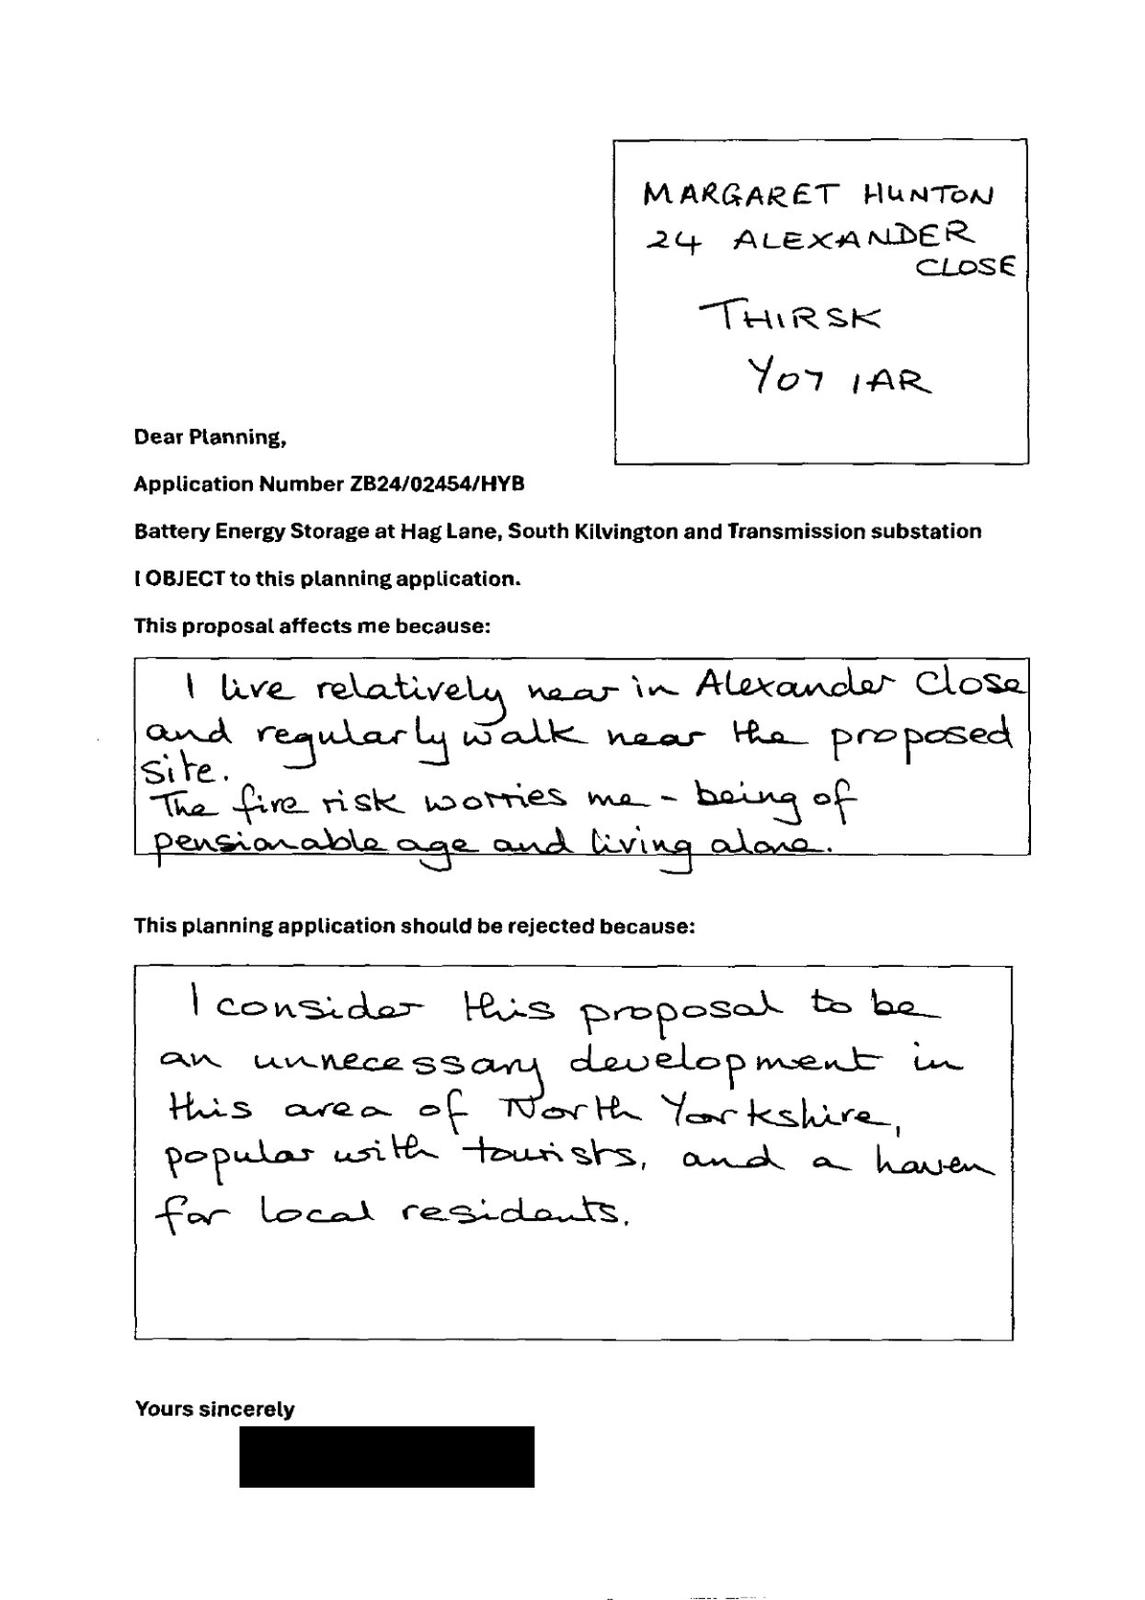 MARGARET HUNTON
24 ALEXANDER
CLOSE
THIRSK
YO7 1AR
Dear Planning,
Application Number ZB24/02454/HYB
Battery Energy Storage at Hag Lane, South Kilvington and Transmission substation
I OBJECT to this planning application.
This proposal affects me because:
I live relatively near in Alexander Close
and regularly walk near the proposed
site.
The fire risk worries me - being of
pensionable age and living alone.
This planning application should be rejected because:
I consider this proposal to be
an unnecessary development in
this area of North Yorkshire,
popular with tourists, and a haven
for local residents.
Yours sincerely